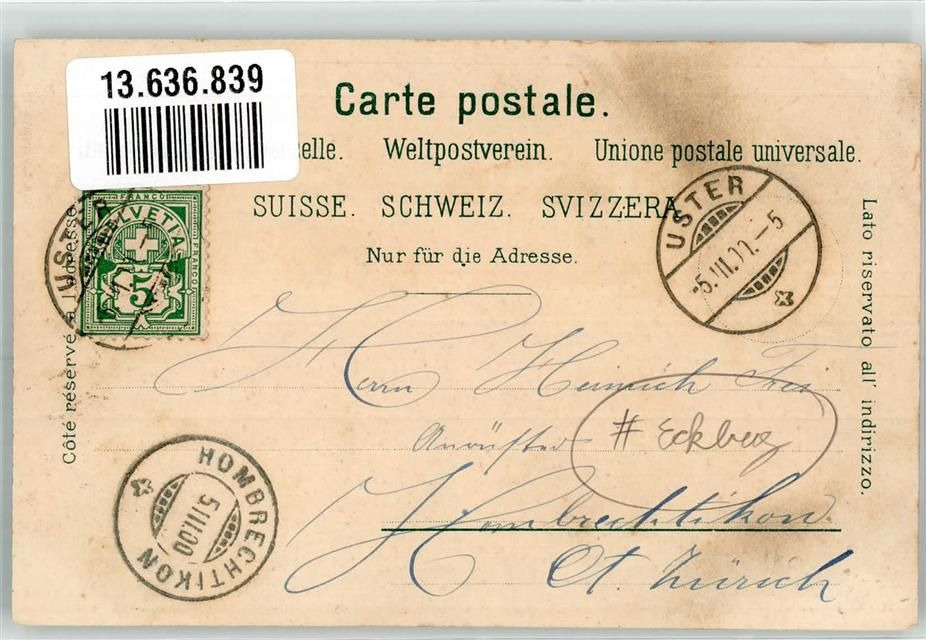 13.636.839
Carte postale.
selle. Weltpostverein. Unione postale universale.
SUISSE. SCHWEIZ. SVIZZERA
Nur für die Adresse.
Côté réservé à l'adresse.
Lato riservato all' indirizzo.
USTER
FRANCO
HELVETIA
FRANCO
5
USTER
-5
HOMBRECHTIKON
Herrn Heinrich Frei
# Eckberg
Hombrechtikon
Ct. Zürich